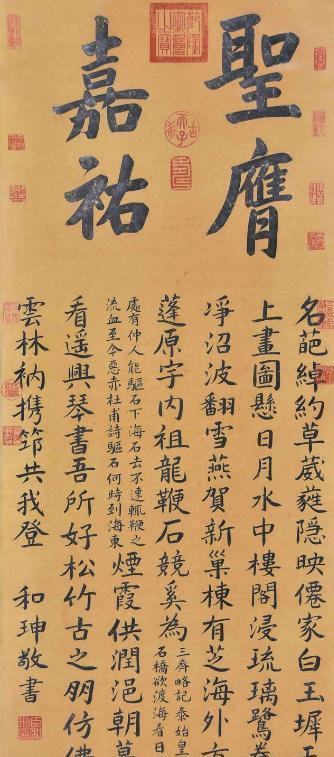 聖膺
嘉祐
名葩綽約草葳蕤隱映僊家白玉墀
上畫圖懸日月水中樓閣浸琉璃鷺
凈沼波翻雪燕賀新巢棟有芝海外方
蓬原字内祖龍鞭石競奚為
三齊略記秦始皇
石橋欲渡海看日
處有仲人能驅石下海石去不速輒鞭之
流血至今悉赤杜甫詩驅石何時到海東
煙霞供潤浥朝
看遥興琴書吾所好松竹古之朋仿佛
雲林衲携筇共我登
和珅敬書